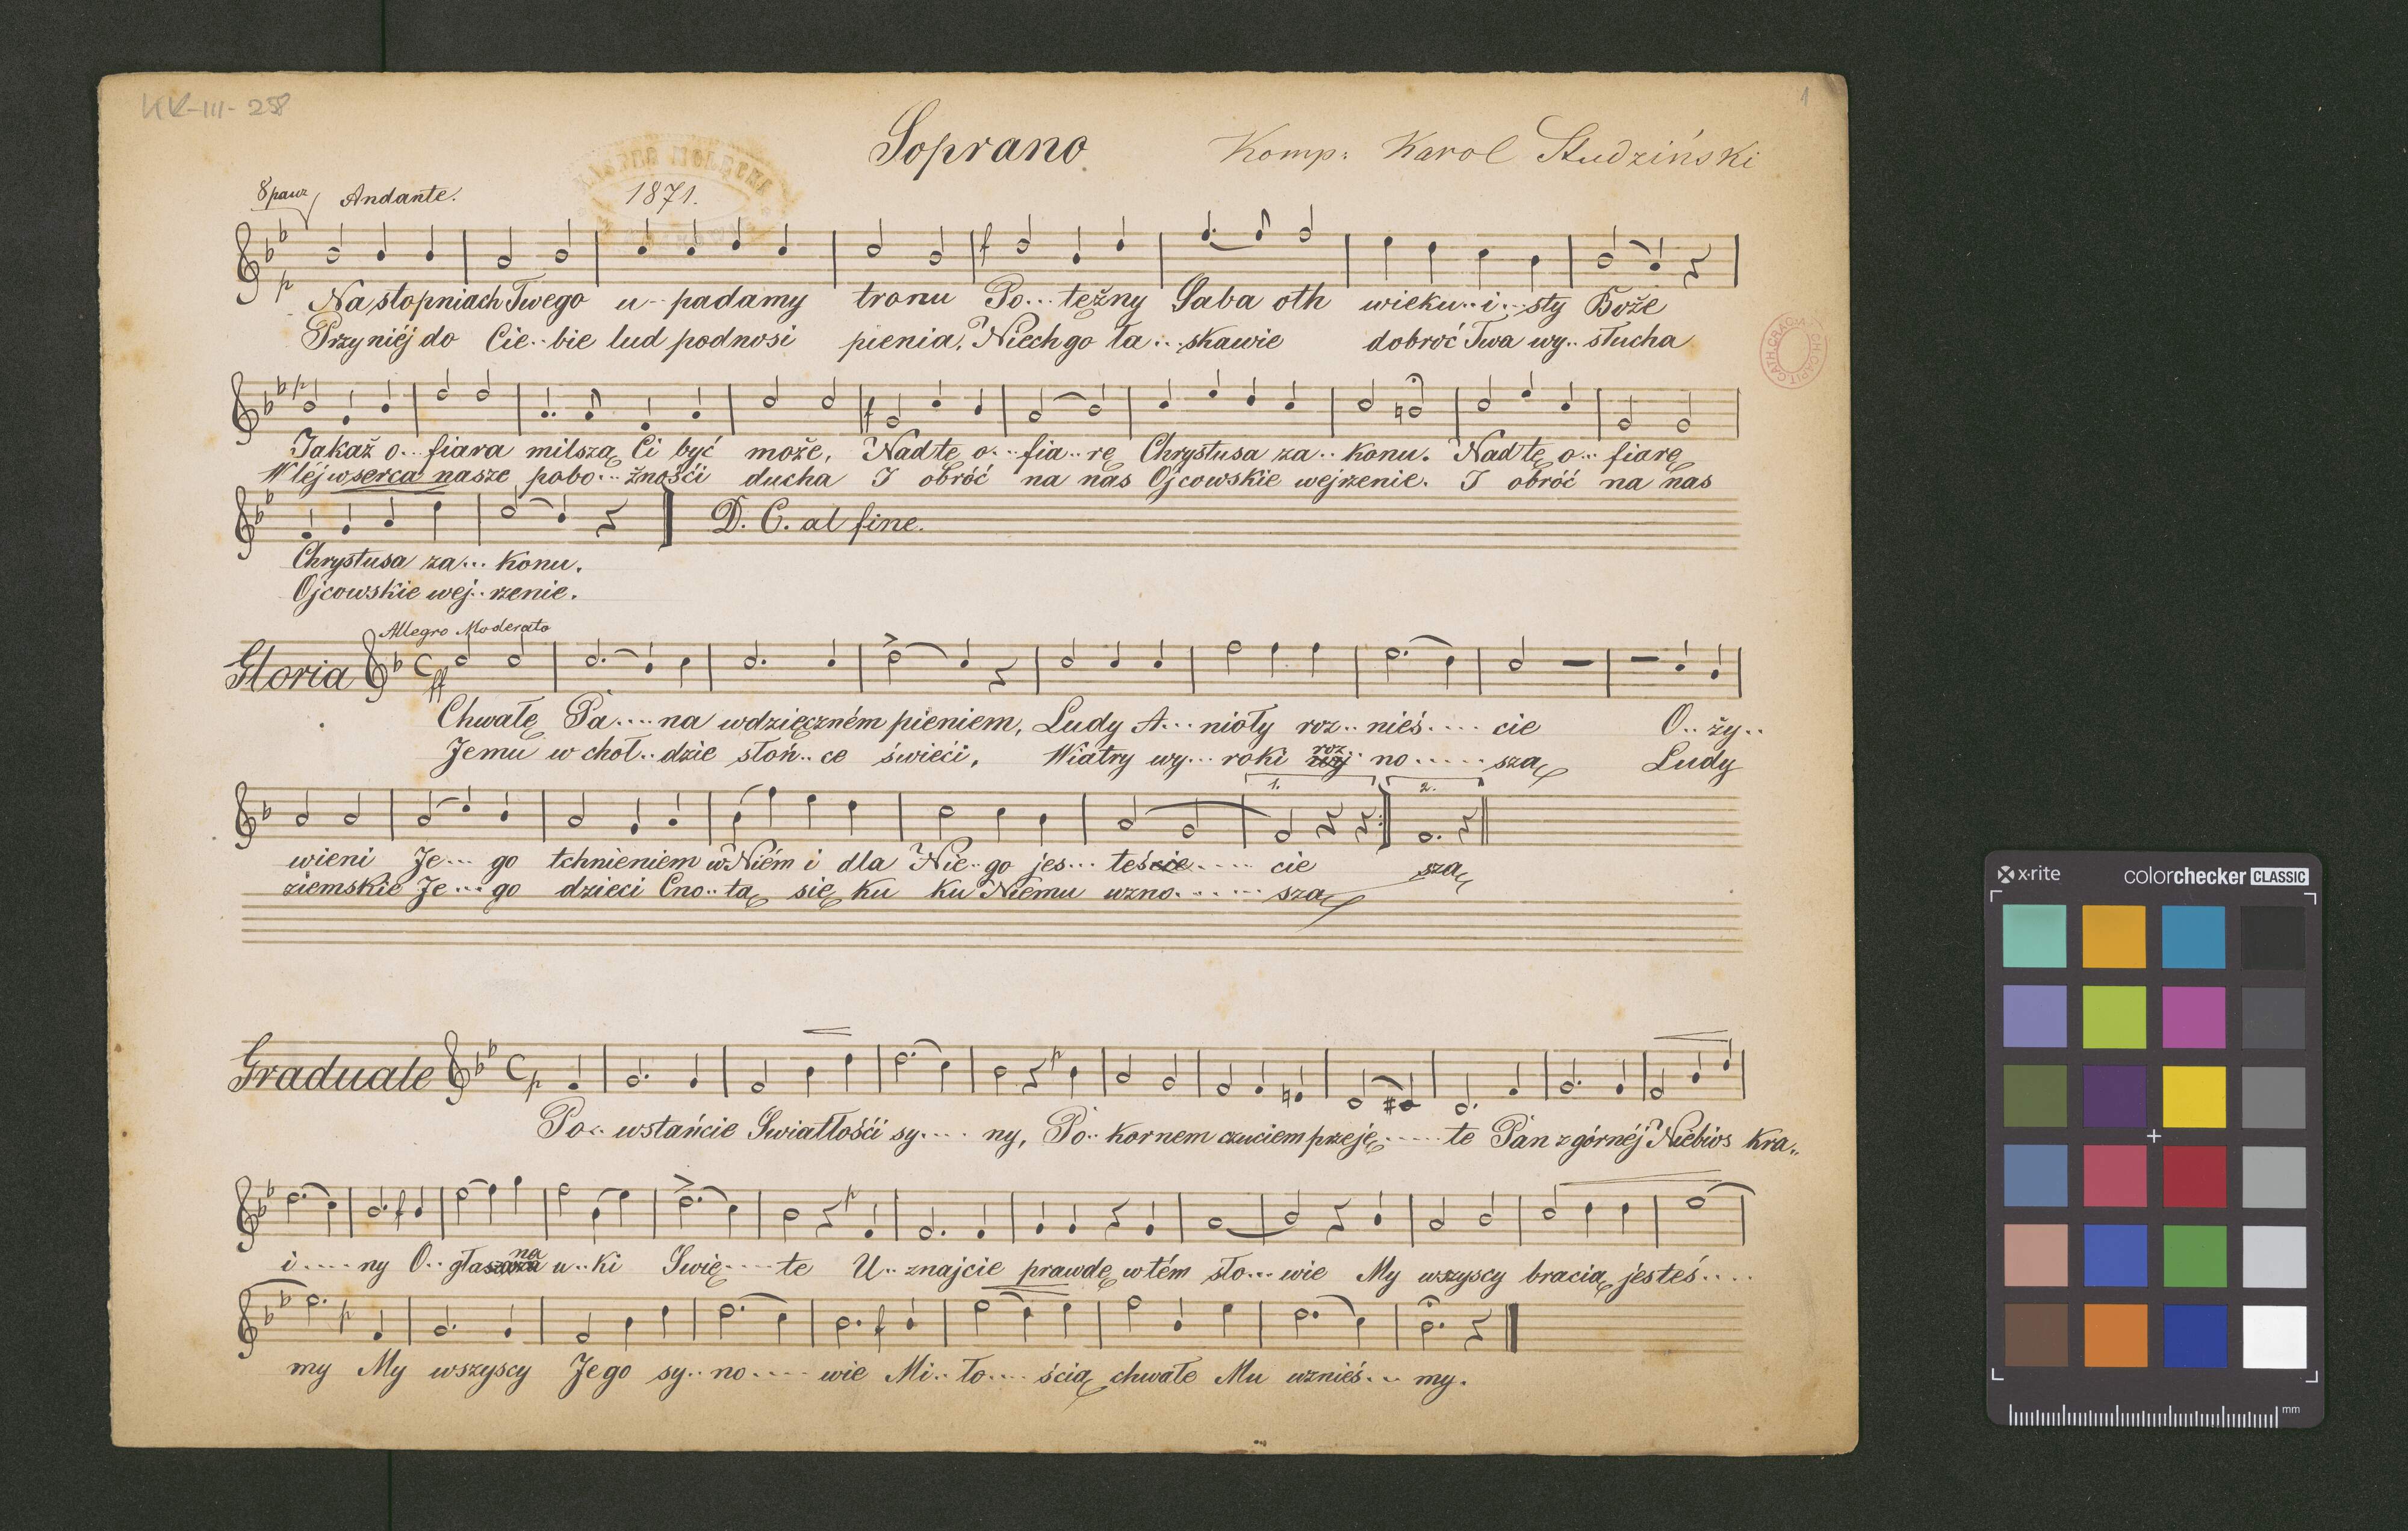 KK-III-258
1
Soprano
Komp: Karol Studziński
8 pauz
Andante.
1871.
p
f
Na stopniach Twego u-- padamy tronu Po... tężny Saba oth wieku..i...sty Boże
Przy niéj do Cie..bie lud podnosi pienia, Niech go ła...skawie dobroć Twa wy..słucha
Jakaż o...fiara milszą Ci być może, Nad tę o...fia..rę Chrystusa za..konu. Nad tę o...fiarę
Wléj w serca nasze pobo...żnośći ducha I obróć na nas Ojcowskie wejrzenie. I obróć na nas
D. C. al fine.
Chrystusa za... konu.
Ojcowskie wej.. rzenie.
Allegro Moderato
Gloria
ff
Chwałę Pa....na wdzięczném pieniem, Ludy A...nioły roz..nieś.... cie O..ży..
Jemu w choł..dzie słoń..ce świeći, Wiatry wy...roki roz.. no.....szą Ludy
1. 2.
wieni Je... go tchnieniem w Niém i dla Nie..go jes...teś.... cie szą
ziemskie Je...go dzieci Cno..tą się ku ku Niemu wzno......szą
Graduale
p
Po.. wstańcie Swiatłośći sy.... ny, Po.. kornem czuciem przeję.....te Pan z górnéj Niebios kra..
i.... ny O.. głasza na u..ki Swię....te U..znajcie prawdę w tém sło...wie My wszyscy bracią jesteś....
my My wszyscy Jego sy..no.... wie Mi..ło.... ścią chwałe Mu wznieś... my.
CATH. CRAC.
x-rite
colorchecker CLASSIC
mm